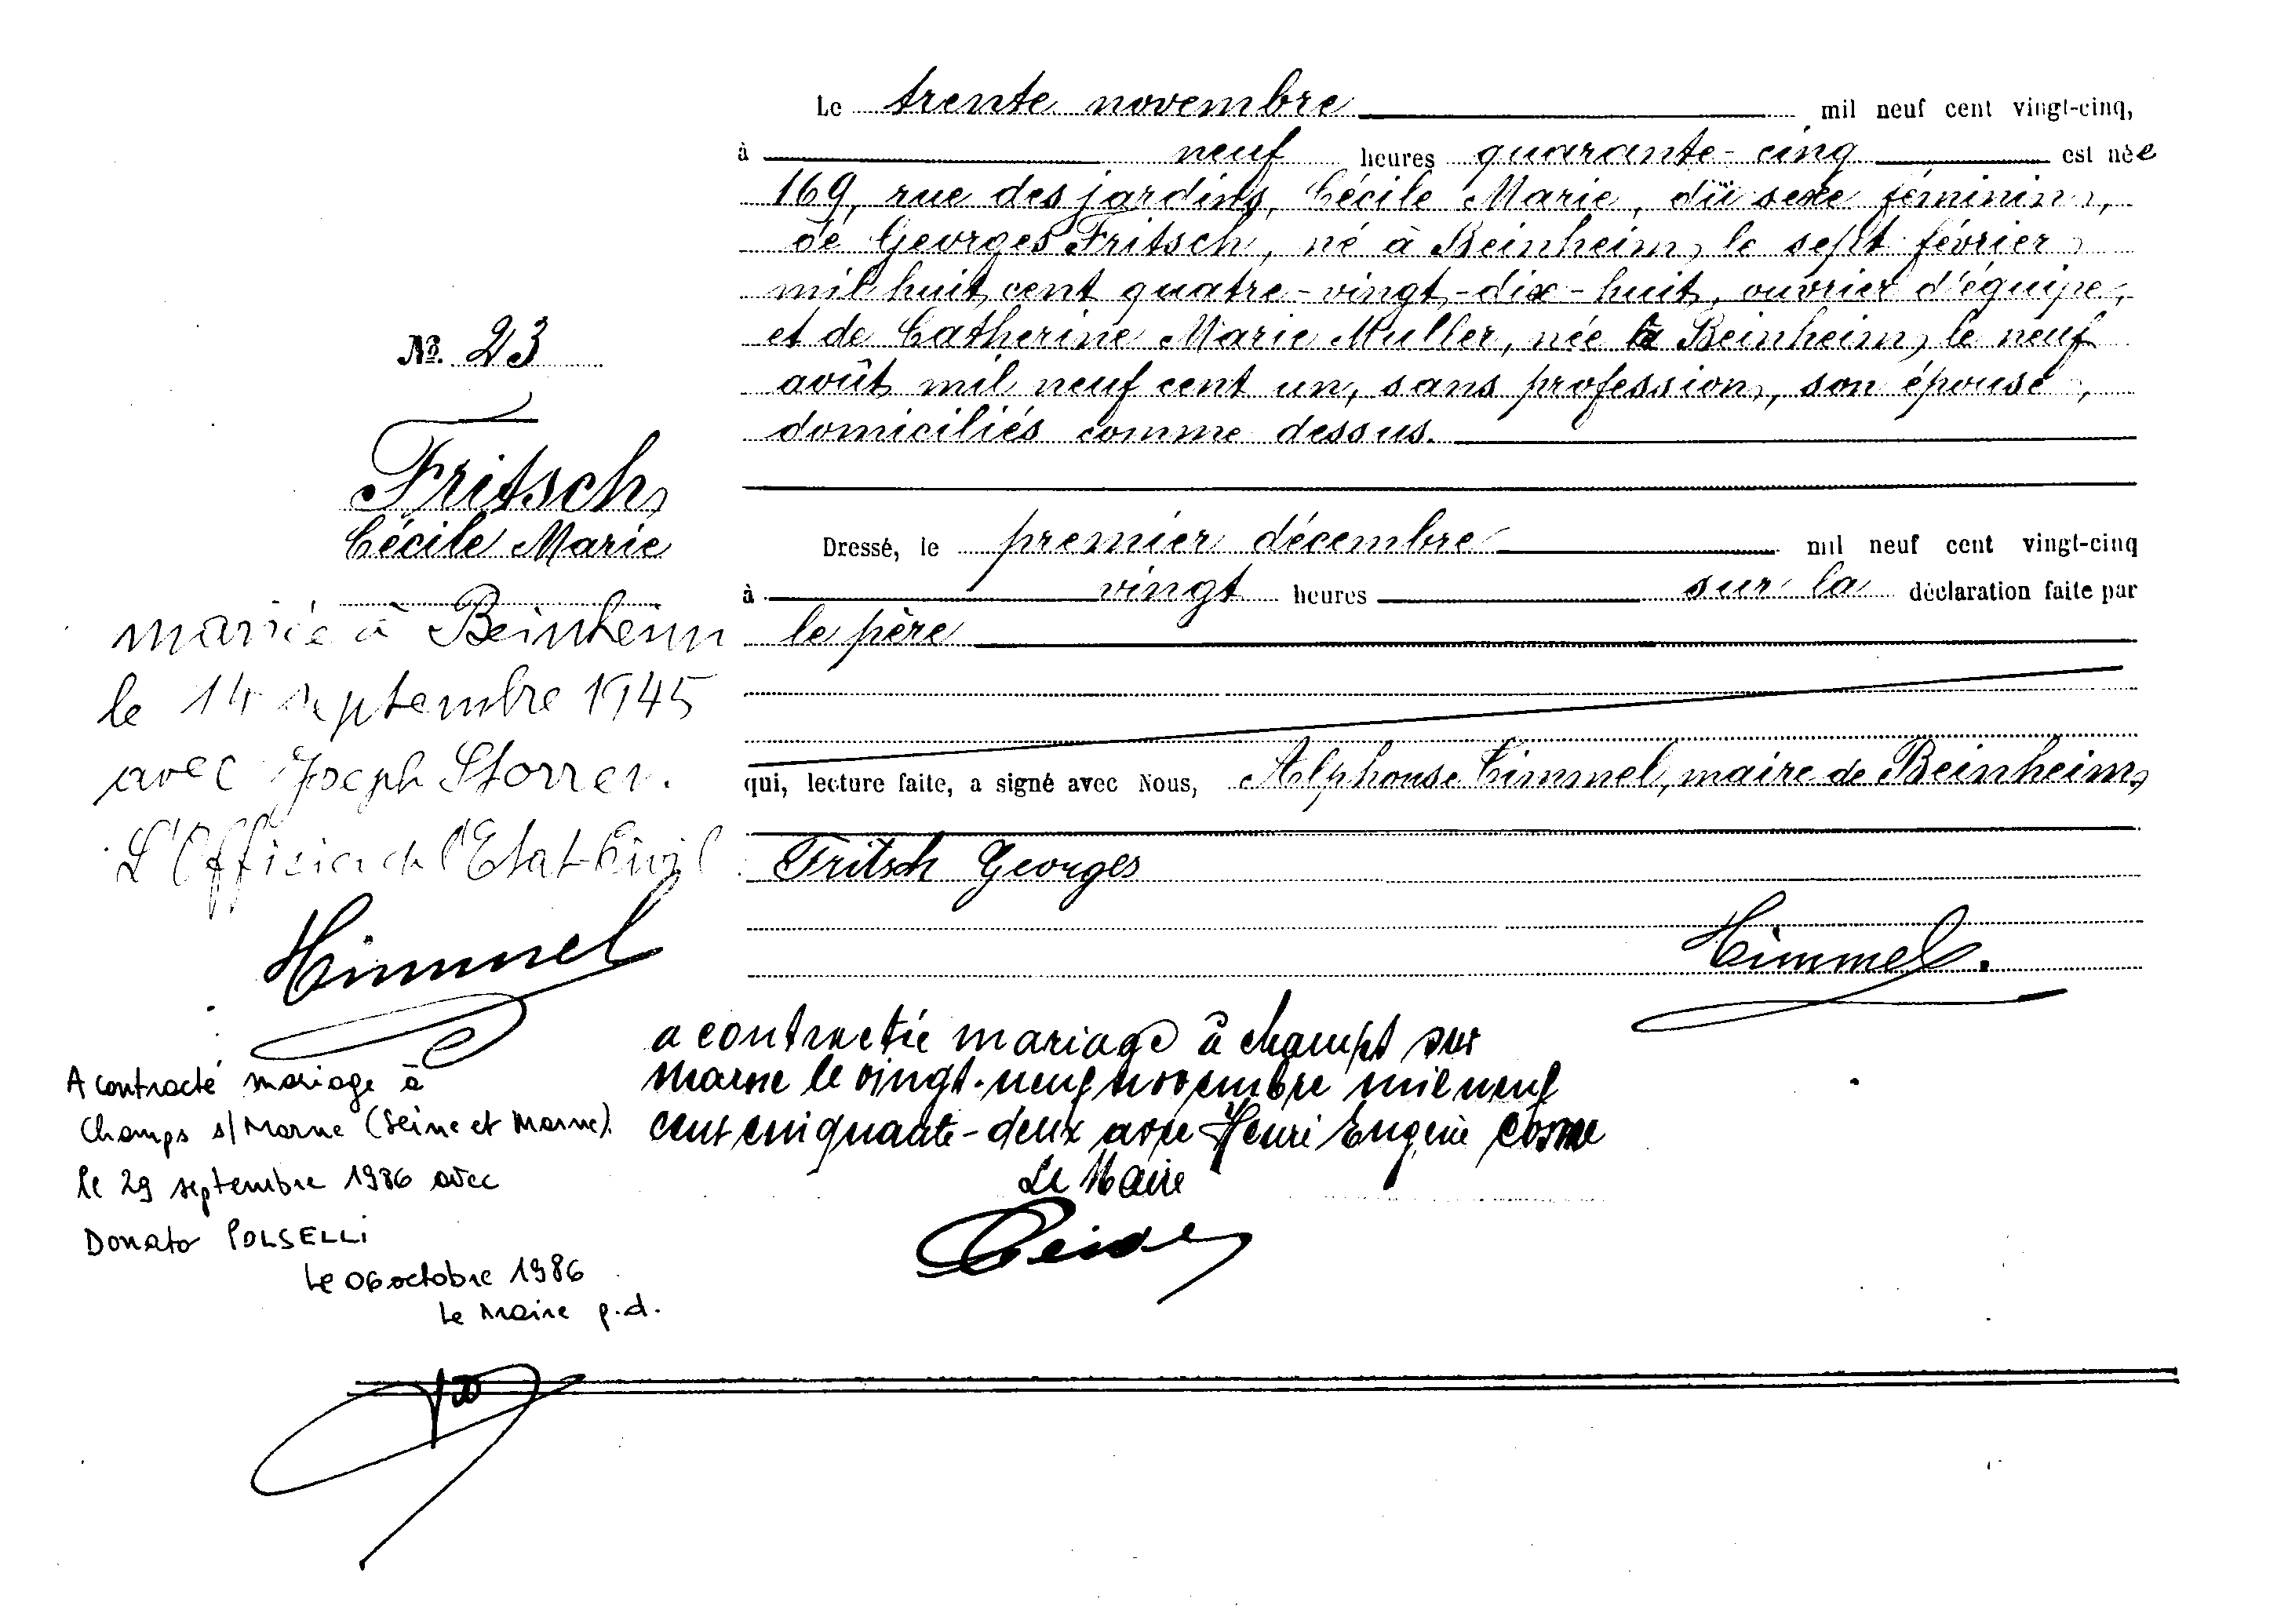 Le trente novembre mil neuf cent vingt-cinq,
à neuf heures quarante-cinq est née
169, rue des jardins, Cécile Marie, du sexe féminin,
de Georges Fritsch, né à Beinheim, le sept février
mil huit cent quatre-vingt-dix-huit, ouvrier d'équipe,
et de Catherine Marie Muller, née à Beinheim, le neuf
août mil neuf cent un, sans profession, son épouse,
domiciliés comme dessus.
Dressé, le premier décembre mil neuf cent vingt-cinq
à vingt heures sur la déclaration faite par
le père
qui, lecture faite, a signé avec Nous, Alphonse Himmel, maire de Beinheim,
Fritsch Georges
Himmel.
№ 23
Fritsch
Cécile Marie
mariée à Beinheim
le 14 septembre 1945
avec Joseph Storrer.
L'Officier de l'Etat-Civil
Himmel
a contractée mariage à champt sur
marne le vingt-neuf novembre mil neuf
cent cinquante-deux avec Henri Eugène Cosme
Le Maire
A contracté mariage à
Champs s/Marne (Seine et Marne)
le 29 septembre 1986 avec
Donato POLSELLI
Le 06 octobre 1986
Le Maire p.d.